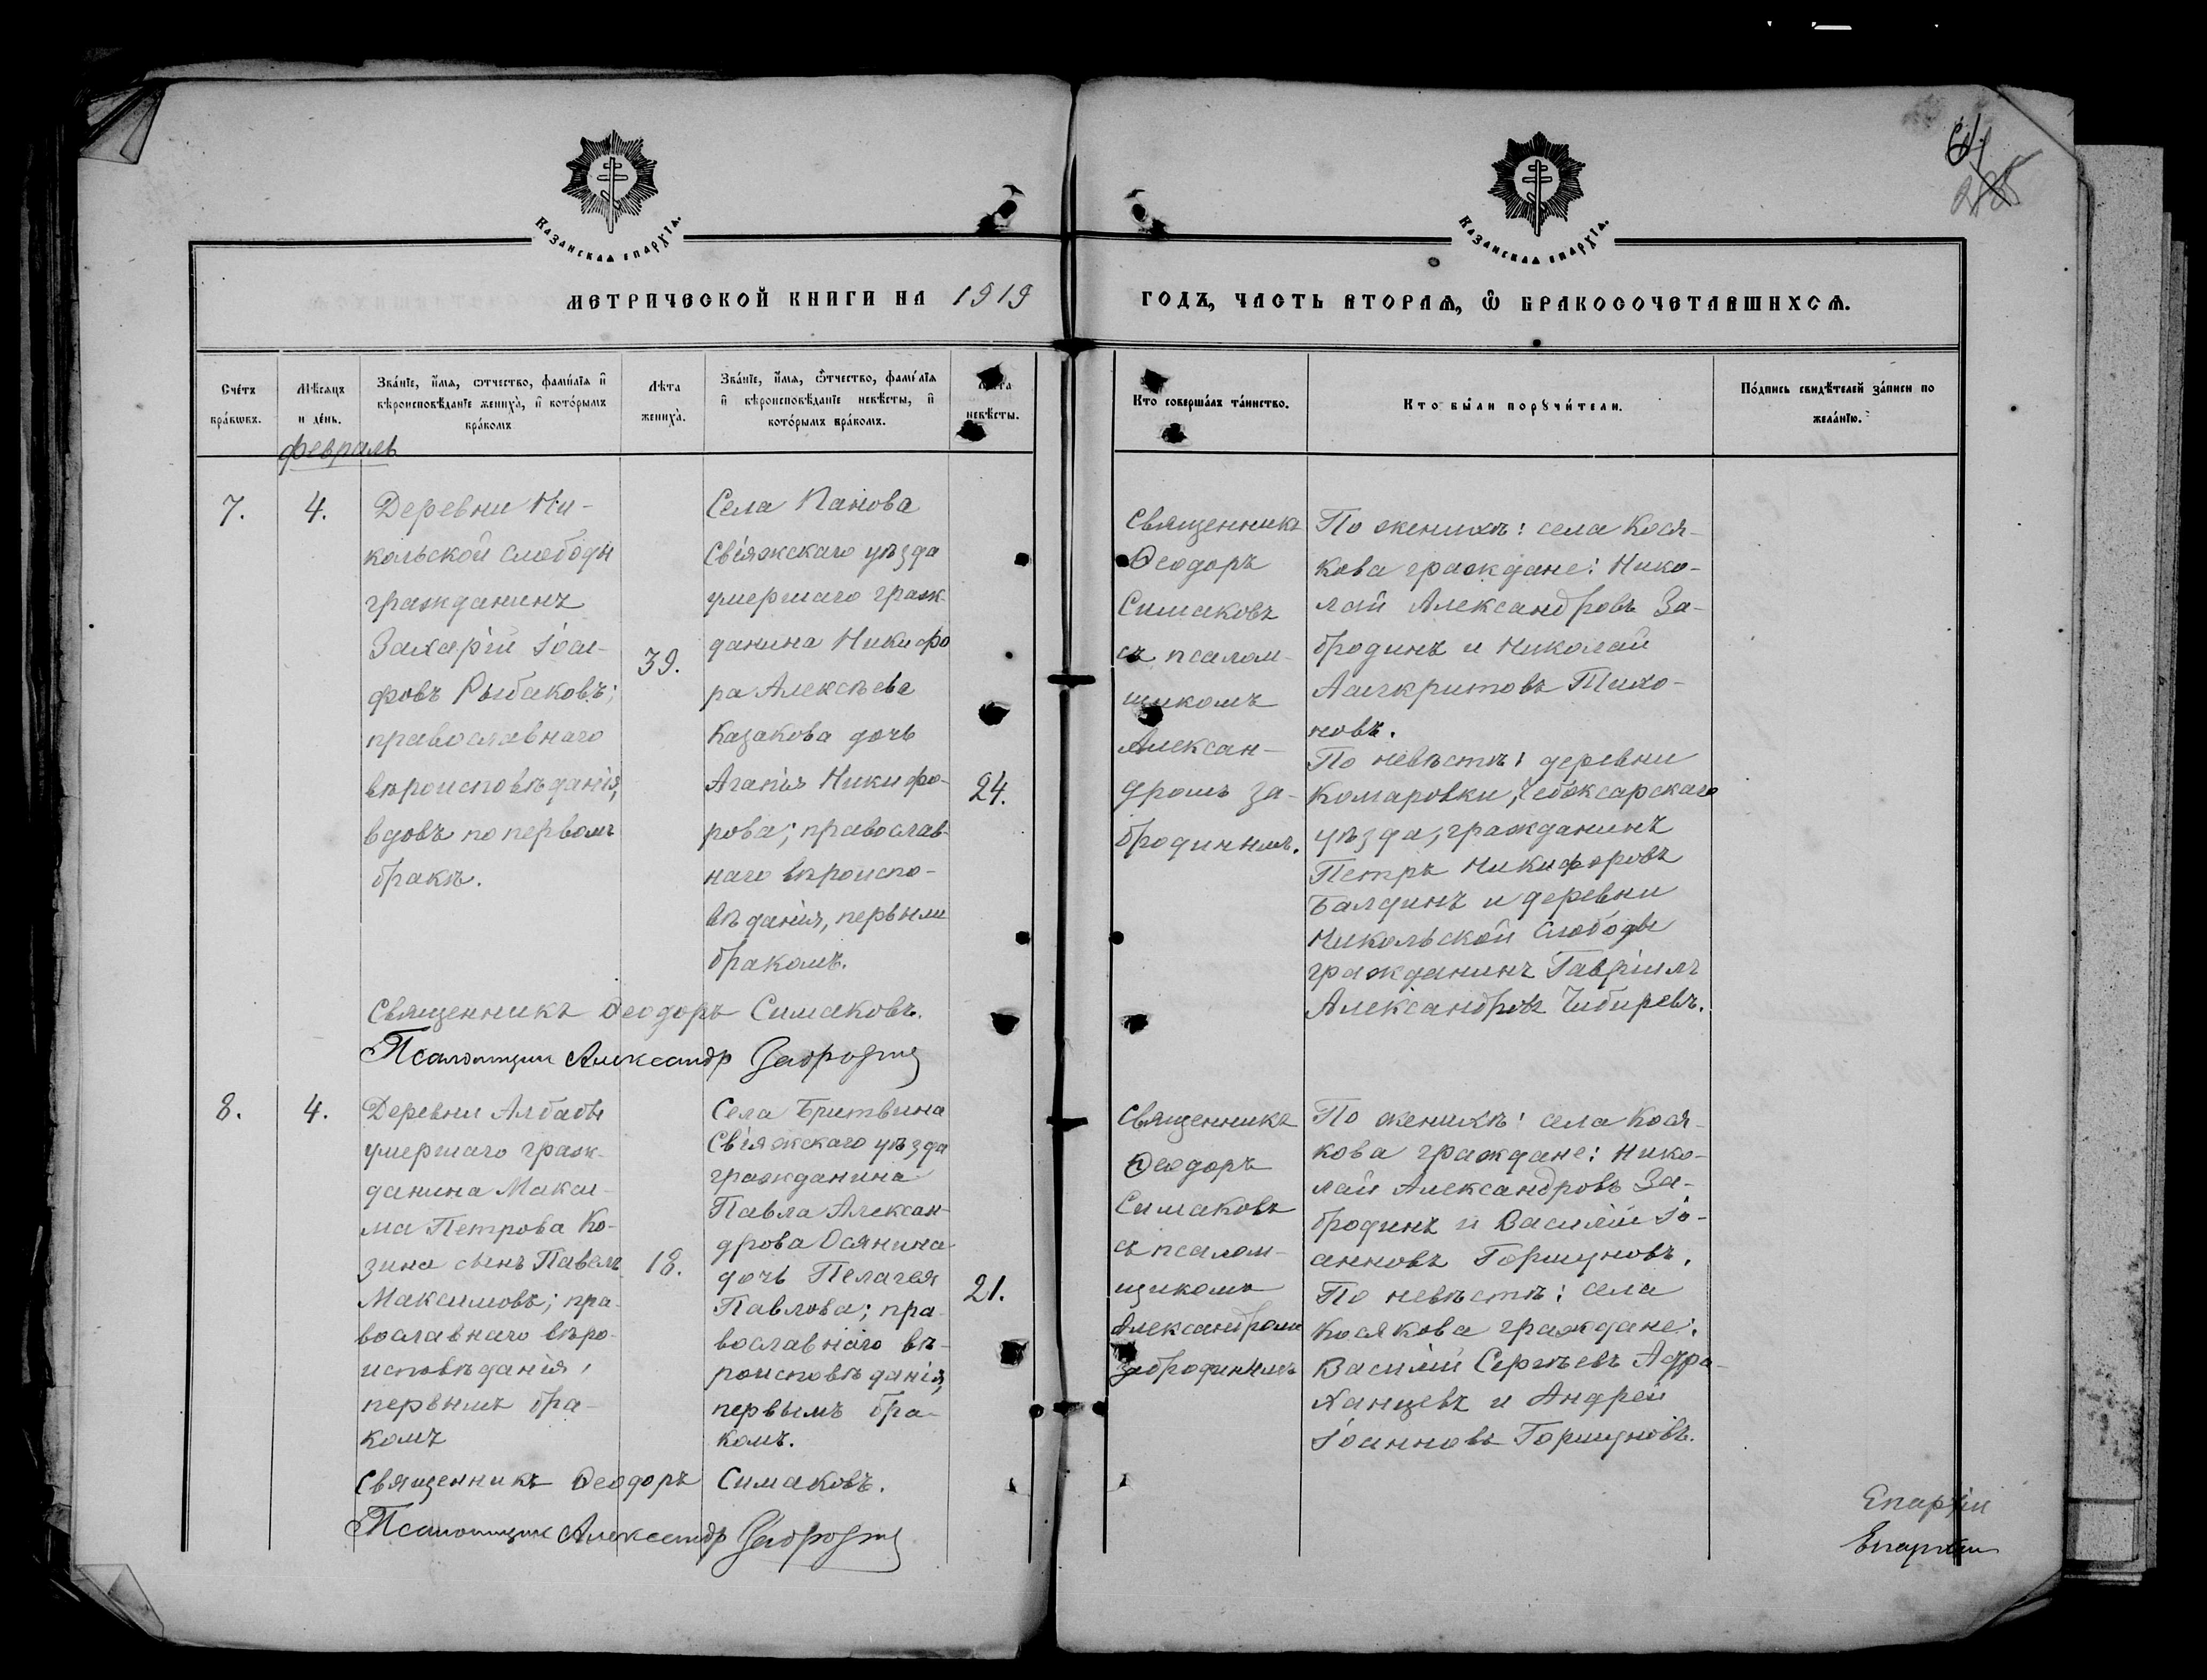 Казанская епархія.
Казанская епархія.
МЕТРИЧЕСКОЙ КНИГИ НА 1919
ГОДЪ, ЧАСТЬ ВТОРАѦ, Ѡ БРАКОСОЧЕТАВШИХСѦ.
Счетъ браковъ.
Мѣсяцъ и день.
Званіе, имя, отчество, фамилія и вѣроисповѣданіе жениха, и которымъ бракомъ
Лѣта жениха.
Званіе, имя, отчество, фамилія и вѣроисповѣданіе невѣсты, и которымъ бракомъ.
Лѣта невѣсты.
Кто совершалъ таинство.
Кто были поручители.
Подпись свидѣтелей записи по желанію.
февраль
7.
4.
Деревни Ни-
кольской слободы
гражданинъ
Захарій Іоси-
фовъ Рыбаковъ;
православнаго
вѣроисповѣданія,
вдовъ по первомъ
бракѣ.
39.
Села Панова
Свіяжскаго уѣзда
умершаго граж-
данина Никифо
ра Алексѣева
Казакова дочь
Агапія Никифо-
рова; православ-
наго вѣроиспо-
вѣданія, первымъ
бракомъ.
24.
Священникъ
Ѳеодоръ
Симаковъ
съ псалом-
щикомъ
Алексан-
дромъ За-
бродинымъ.
По женихѣ: села Кося-
кова граждане: Нико-
лай Александровъ За-
бродинъ и Николай
Асигкритовъ Тихо-
новъ.
По невѣстѣ: деревни
Комаровки, Чебоксарскаго
уѣзда, гражданинъ
Петръ Никифоровъ
Балдинъ и деревни
Никольской Слободы
гражданинъ Гавріилъ
Александровъ Чибиревъ.
Священникъ Ѳеодоръ Симаковъ.
Псаломщик Александр Забродин
8.
4.
Деревни Албабы
умершаго граж-
данина Макси-
ма Петрова Ко-
зина сынъ Павелъ
Максимовъ; пра-
вославнаго вѣро-
исповѣданія,
первымъ бра-
комъ
18.
Села Бритвина
Свіяжскаго уѣзда
гражданина
Павла Алексан-
дрова Осянина
дочь Пелагея
Павлова; пра-
вославнаго вѣ-
роисповѣданія,
первымъ бра-
комъ.
21.
Священникъ
Ѳеодоръ
Симаковъ
съ псалом-
щикомъ
Александромъ
Забродинымъ
По женихѣ: села Кося-
кова граждане: Нико-
лай Александровъ За-
бродинъ и Василій Іо-
анновъ Горшуновъ.
По невѣстѣ: села
Косякова граждане:
Василій Сергѣевъ
и Андрей
Іоанновъ Горшуновъ.
Священникъ Ѳеодоръ Симаковъ.
Псаломщик Александр Забродин
Епархіи
Епархіи